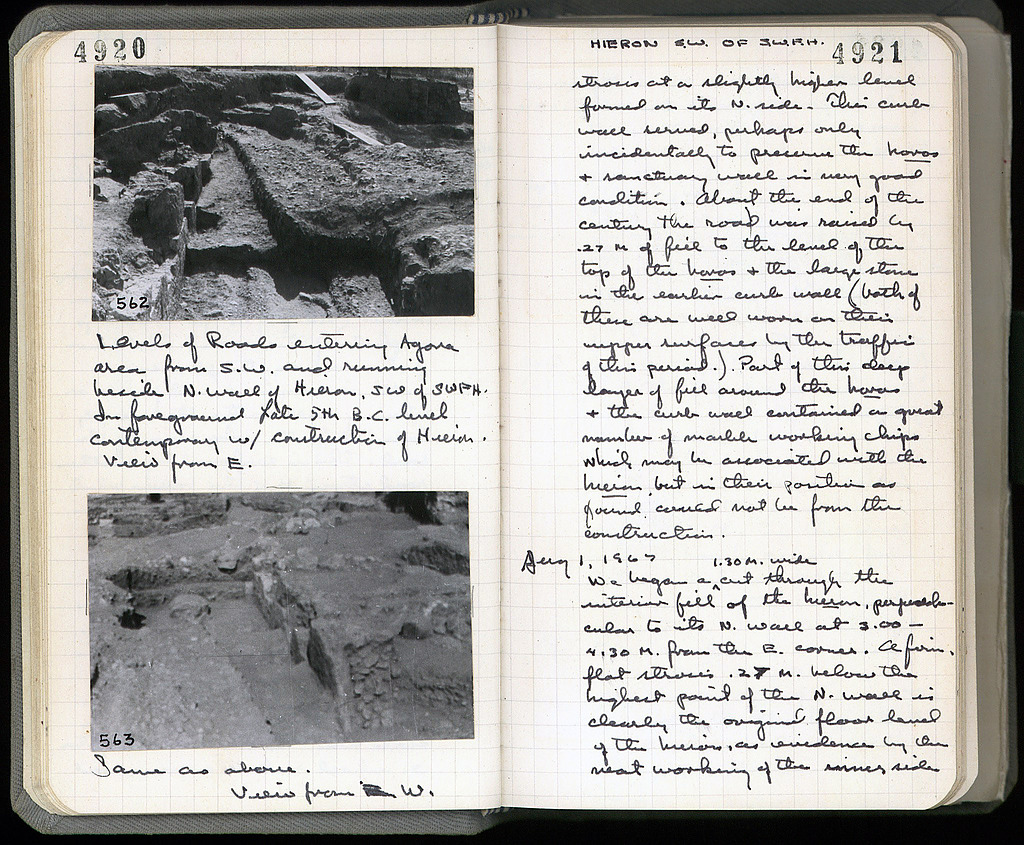 4920
562
Levels of Roads entering Agora
area from S.W. and running
beside N. wall of Hieron, SW of SWFH.
In foreground late 5th B.C. level
contemporary w/ construction of Hieron.
View from E.
563
Same as above.
View from W.
HIERON SW. OF SWFH.
4921
strosis at a slightly higher level
formed on its N. side. This curb
wall served, perhaps only
incidentally to preserve the horos
+ sanctuary wall in very good
condition. About the end of the
century the road was raised by
.27 M of fill to the level of the
top of the horos + the large stone
in the earlier curb wall (both of
these are well worn on their
upper surfaces by the traffic
of this period.). Part of this deep
layer of fill around the horos
+ the curb wall contained a great
number of marble working chips
which may be associated with the
hieron, but in their position as
found could not be from the
construction.
Aug 1, 1967 1.30 M. wide
We began a cut through the
interior fill of the hieron, perpendi-
cular to its N. wall at 3.00 –
4.30 M. from the E. corner. A firm,
flat strosis .27 M. below the
highest point of the N. wall is
clearly the original floor level
of the hieron, as evidence by the
neat working of the inner side